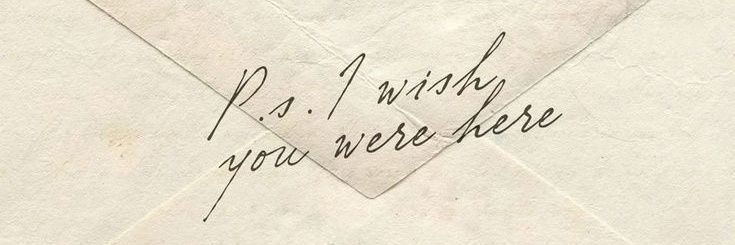 P.s. I wish
you were here